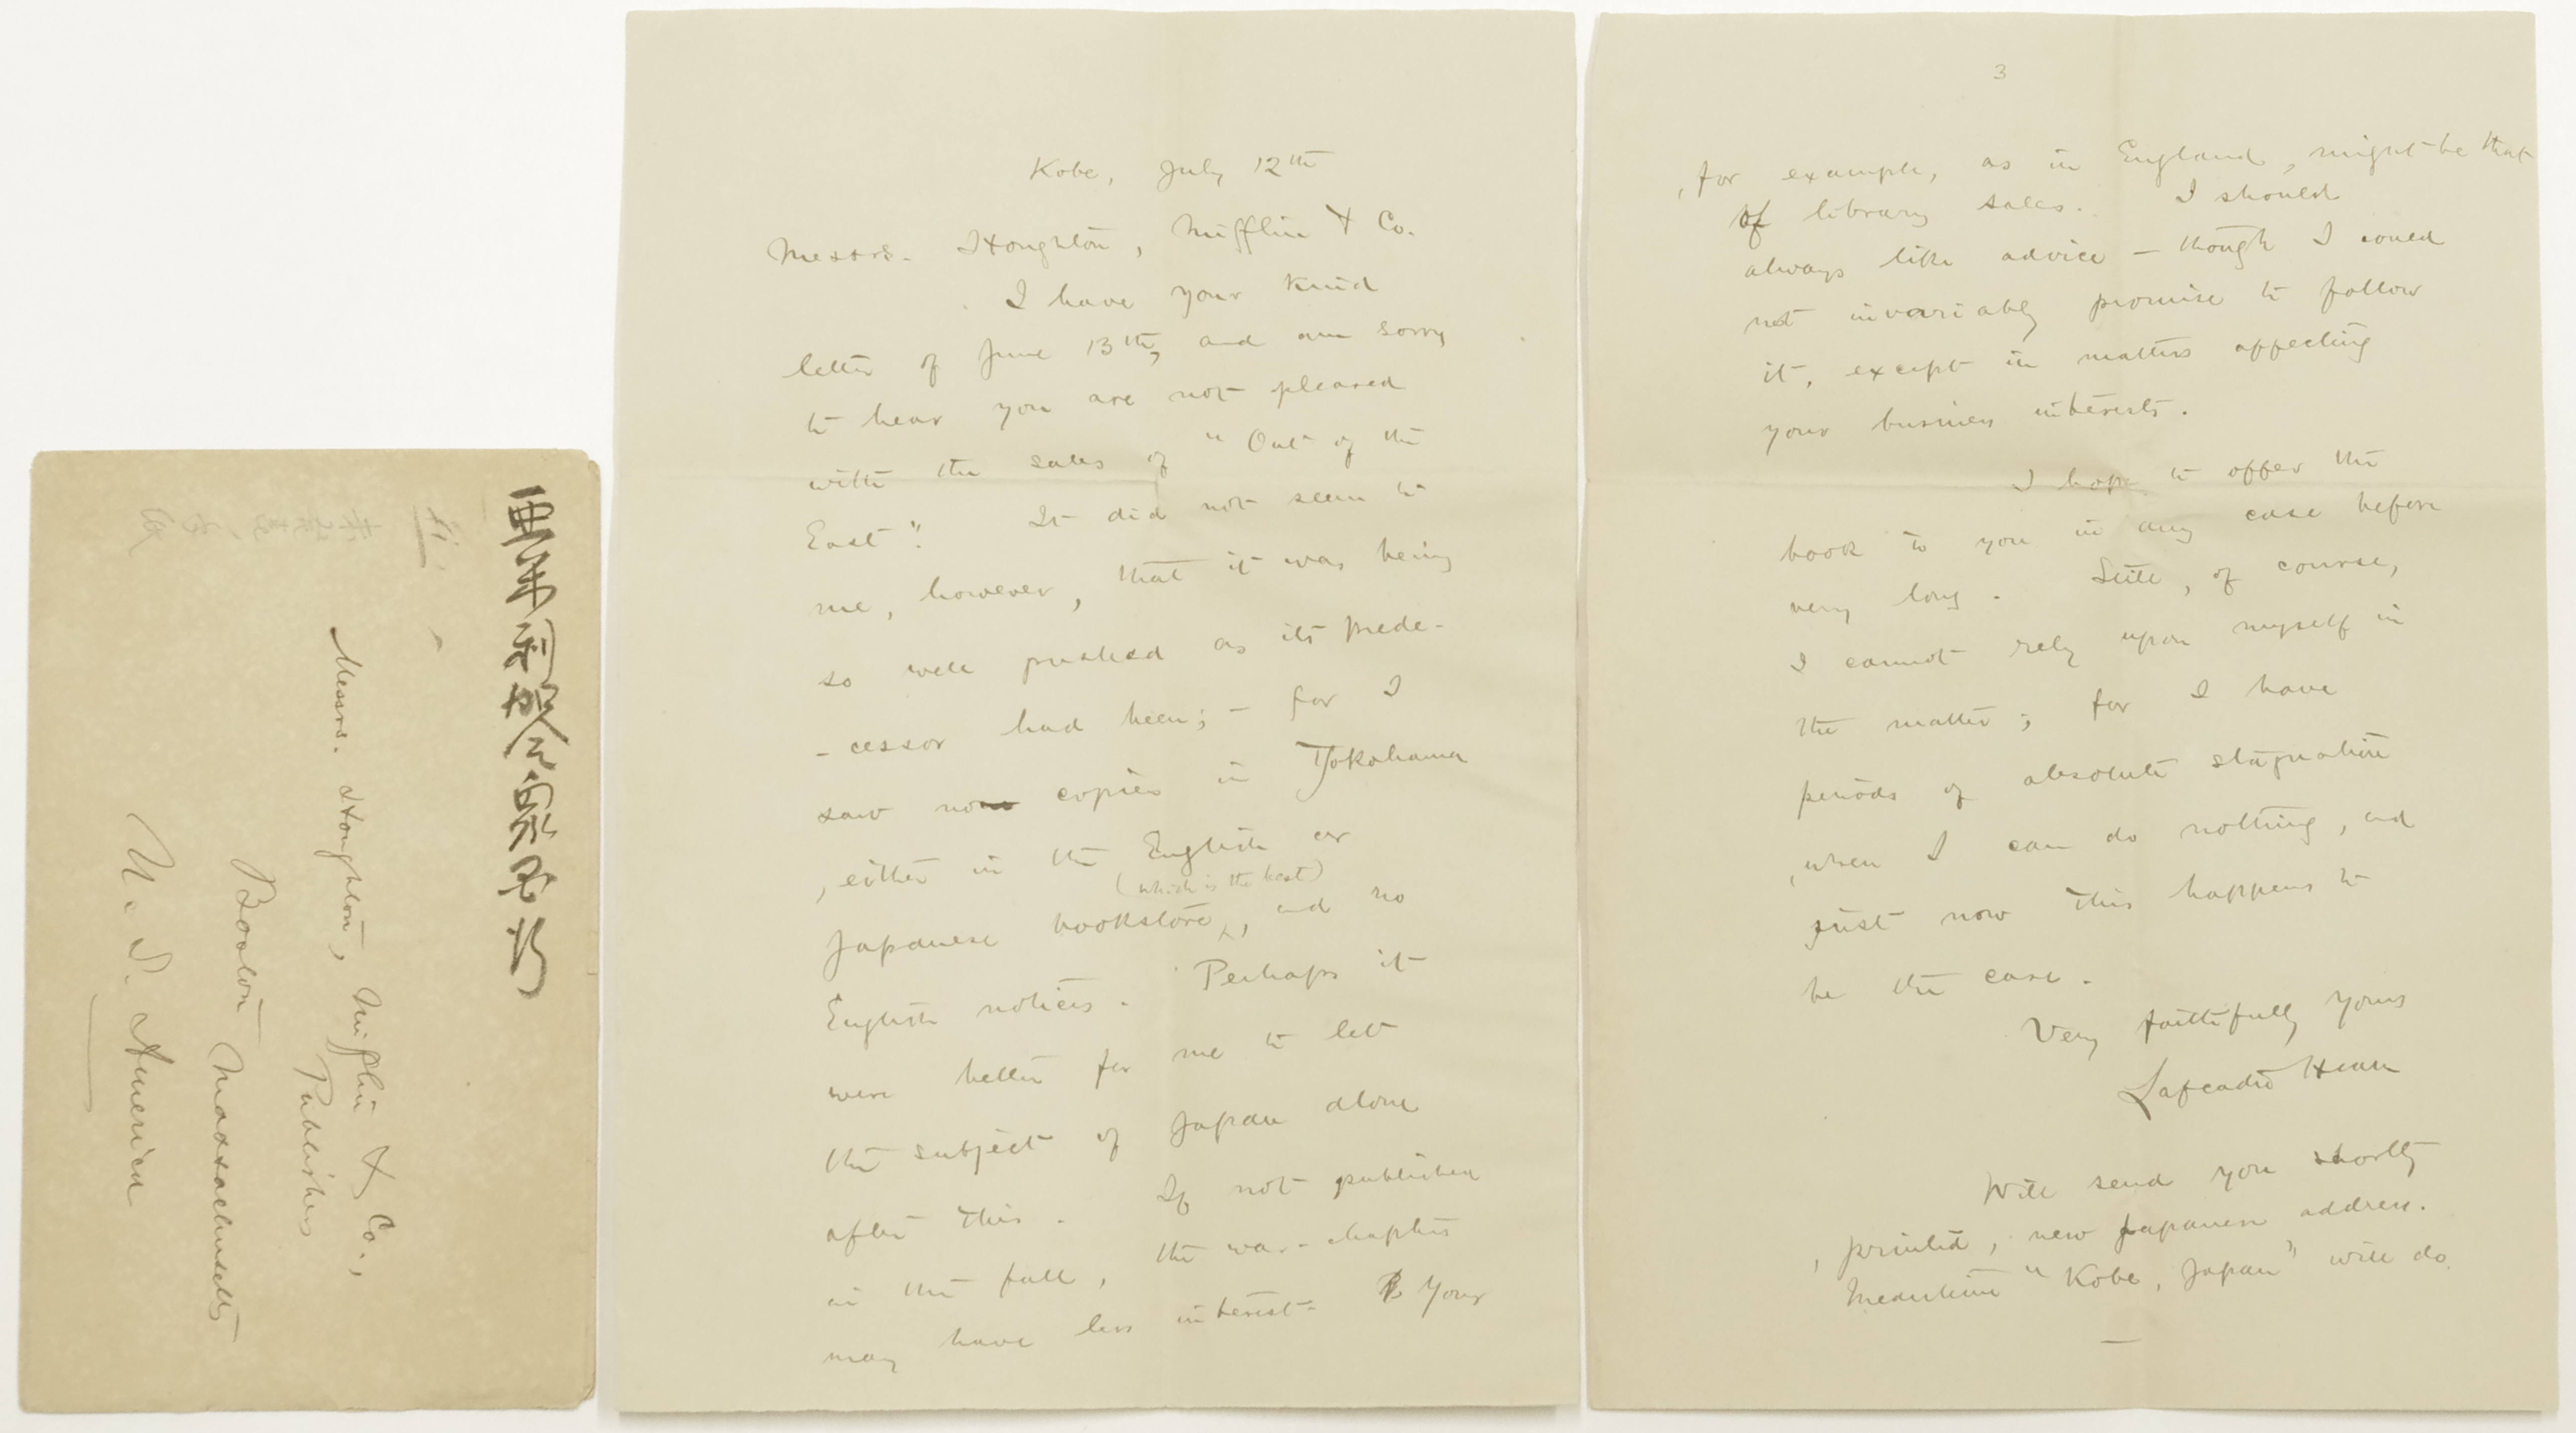 亜米利加合衆国行
Messrs. Houghton, Mifflin & Co.,
Publishers
Boston
Massachusetts
U. S. America
Kobe, July 12th
Messrs. Houghton, Mifflin & Co.
I have your kind
letter of June 13th, and am sorry
to hear you are not pleased
with the sales of "Out of the
East". It did not seem to
me, however, that it was being
so well pushed as its prede-
-cessor had been; - for I
saw no copies in Yokohama
, either in the English or
(which is the best)
Japanese bookstore, and no
English notices. Perhaps it
were better for me to let
the subject of Japan alone
after this. If not published
in the fall, the war-chapters
may have less interest. Your
3
, for example, as in England, might be that
of library sales. I should
always like advice – though I could
not invariably promise to follow
it, except in matters affecting
your business interests.
I hope to offer the
book to you in any case before
very long. Still, of course,
I cannot rely upon myself in
the matter; for I have
periods of absolute stagnation
, when I can do nothing, and
just now this happens to
be the case.
Very faithfully yours
Lafcadio Hearn
Will send you shortly
, printed, new Japanese address.
Meantime "Kobe, Japan" will do.